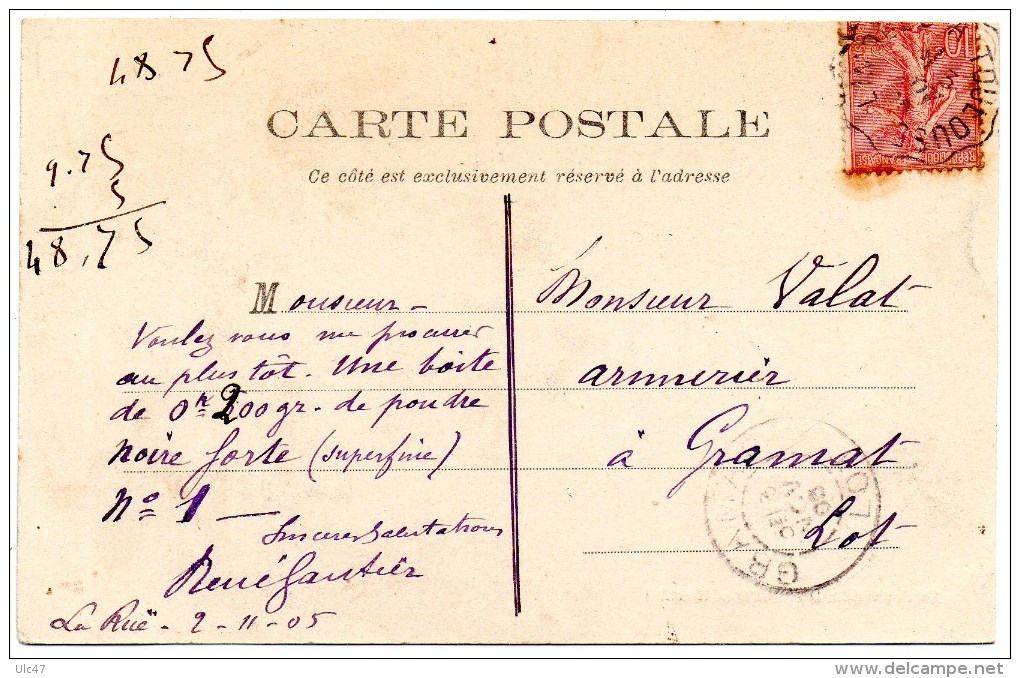 48 75
9.75
5
48,75
CARTE POSTALE
Ce côté est exclusivement réservé à l'adresse
Monsieur -
Voulez vous me procurer
au plus tôt. Une boite
de 0k 200gr. de poudre
noire forte (superfine)
No 1 —
Sincères Salutations
René Gautier
La Rue - 2-11-05
Monsieur Valat
armurier
à Gramat
Lot
10
GRAMAT
LOT
Ulc47
delcampe.net